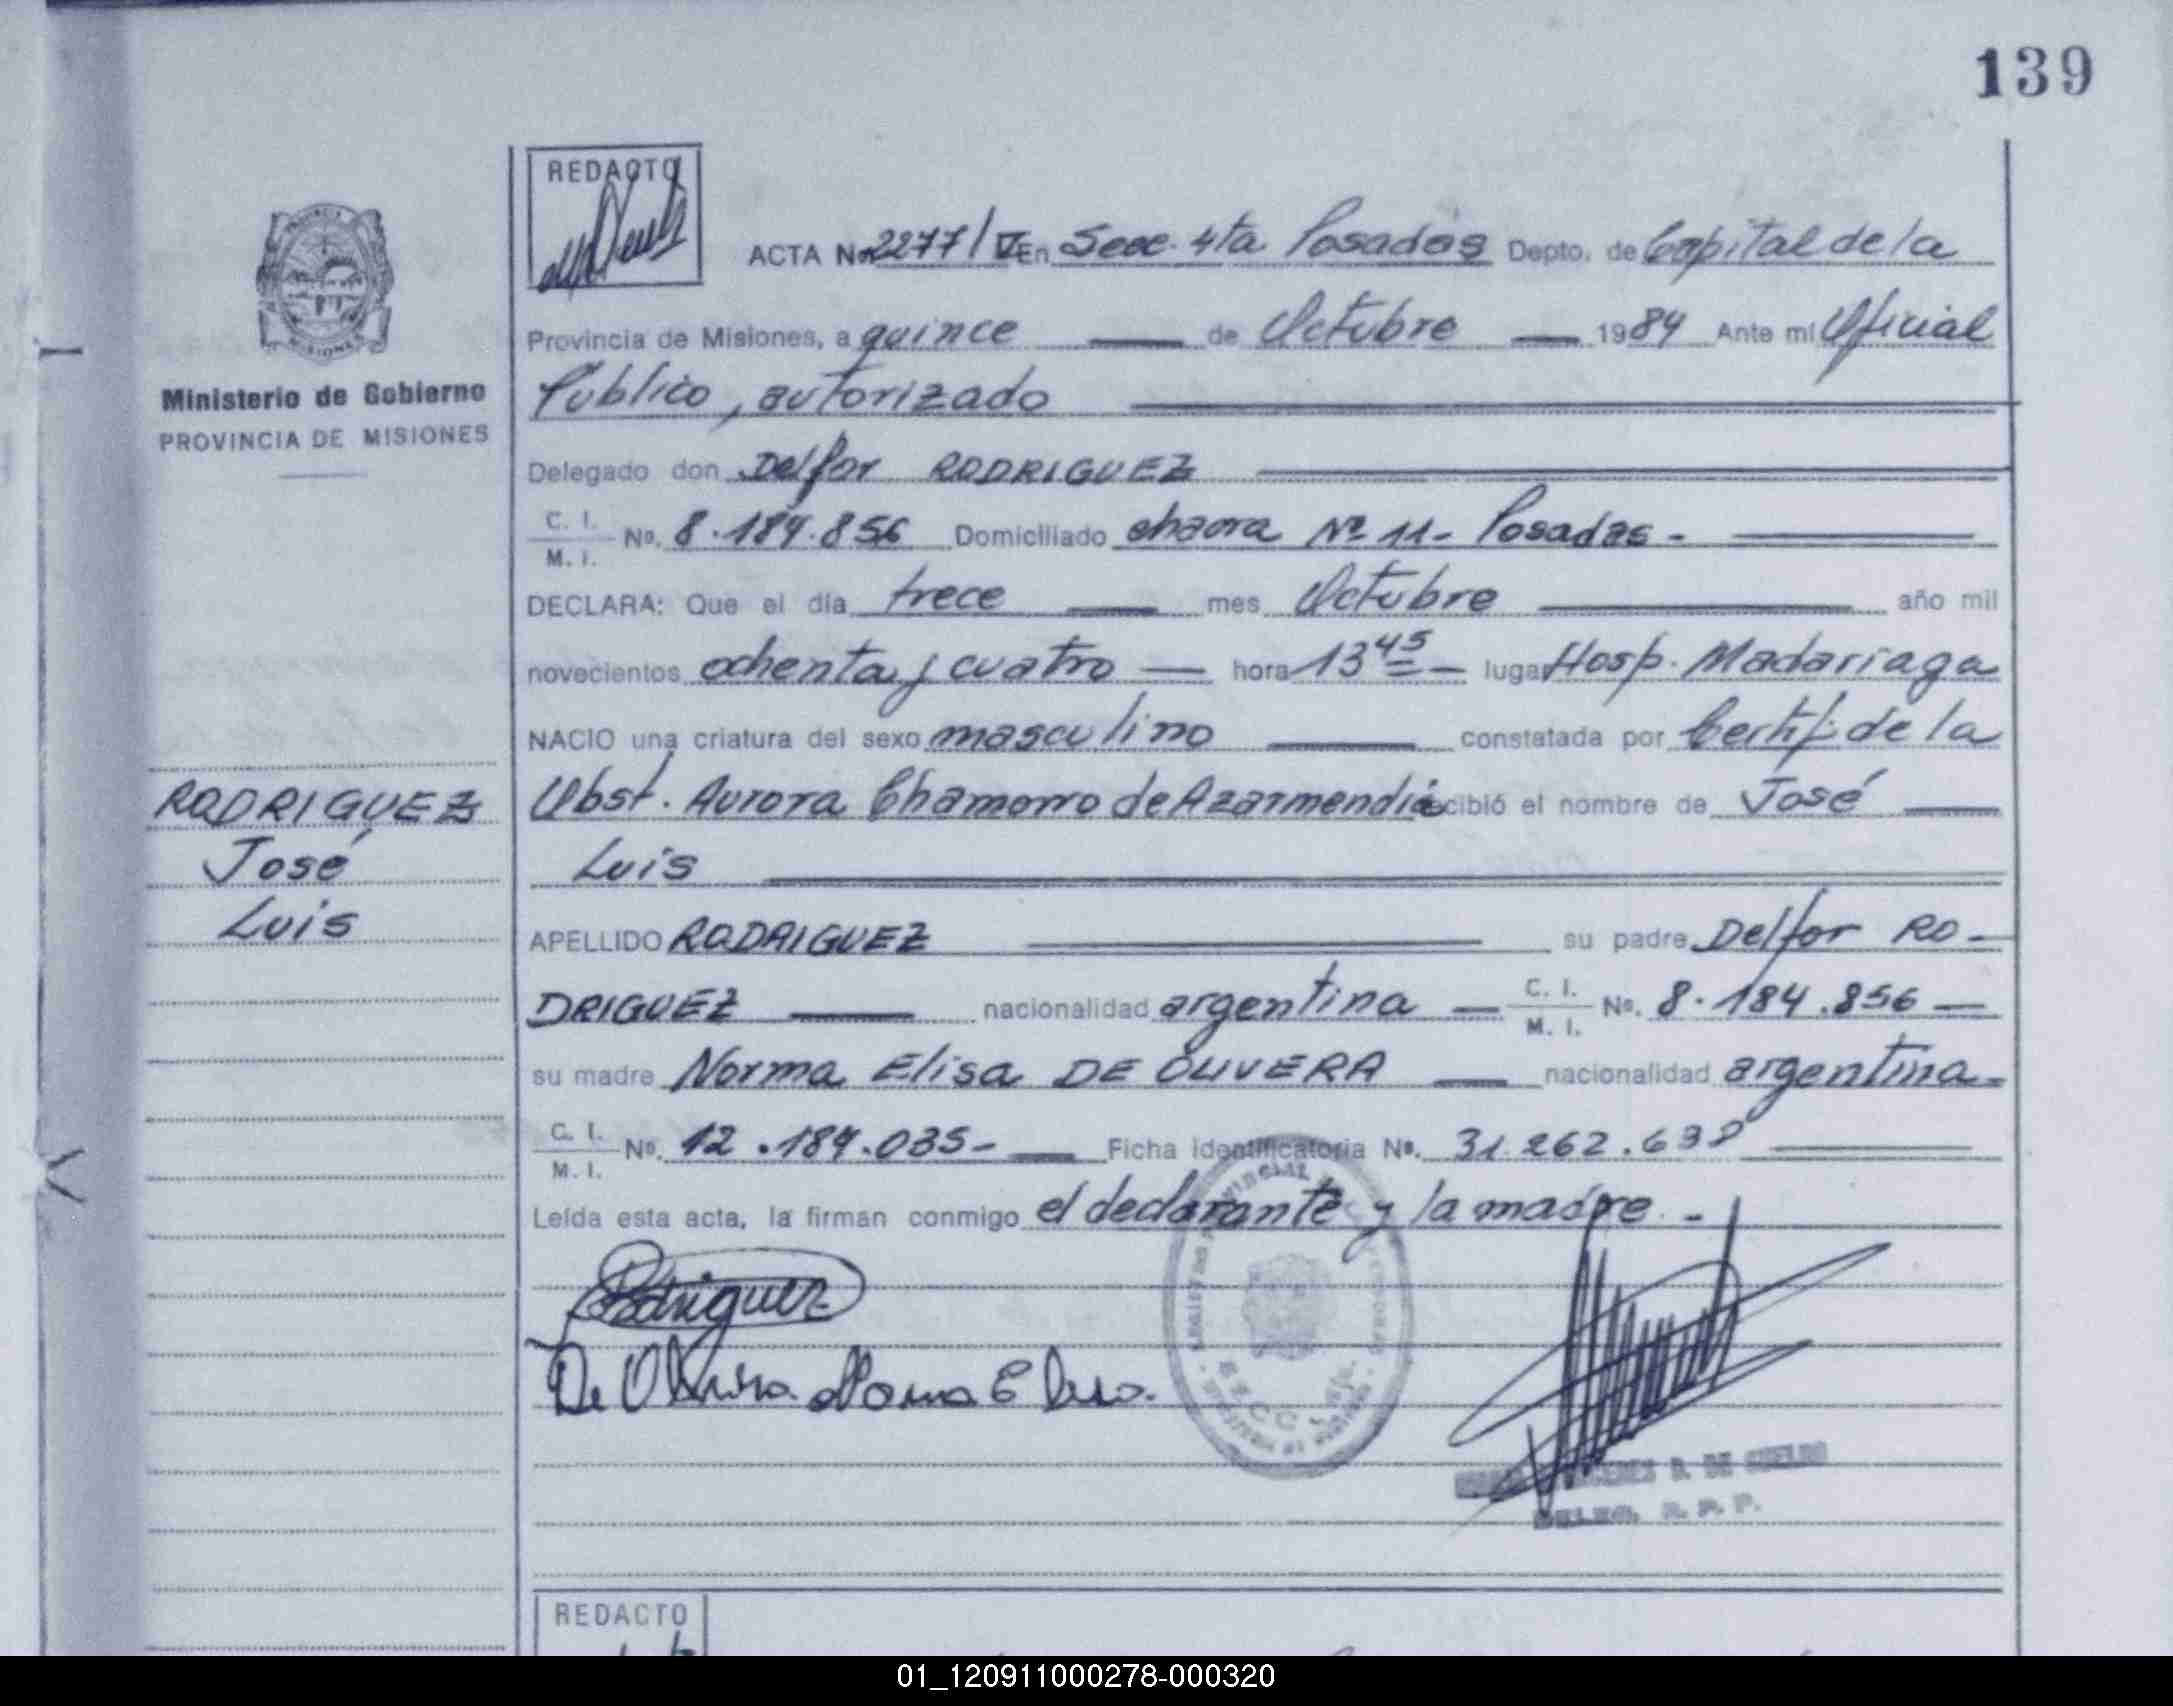 139
REDACTO
ACTA No 2277/V En Secc. 4ta Posadas Depto. de Capital de la
Provincia de Misiones, a quince de Octubre 1984 Ante mí Oficial
Ministerio de Gobierno
PROVINCIA DE MISIONES
Público, autorizado
Delegado don Delfor RODRIGUEZ
C. I.
M. I. No. 8.184.856 Domiciliado chacra Nº 11- Posadas.-
DECLARA: Que el día trece mes Octubre año mil
novecientos ochenta y cuatro hora 13 45 lugar Hosp. Madariaga
NACIO una criatura del sexo masculino constatada por Certif. de la
Obst. Aurora Chamorro de Azarmendia recibió el nombre de José
Luis
RODRIGUEZ
José
Luis
APELLIDO RODRIGUEZ su padre Delfor RO-
DRIGUEZ nacionalidad argentina C. I.
M. I. No. 8.184.856
su madre Norma Elisa DE OLIVERA nacionalidad argentina
C. I.
M. I. No. 12.184.035- Ficha identificatoria No. 31.262.638
Leída esta acta, la firman conmigo el declarante y la madre.-
Rodriguez
De Olivera Norma Elisa.
DE CUELHO
DELEG. R. P. P.
REDACTO
01_120911000278-000320